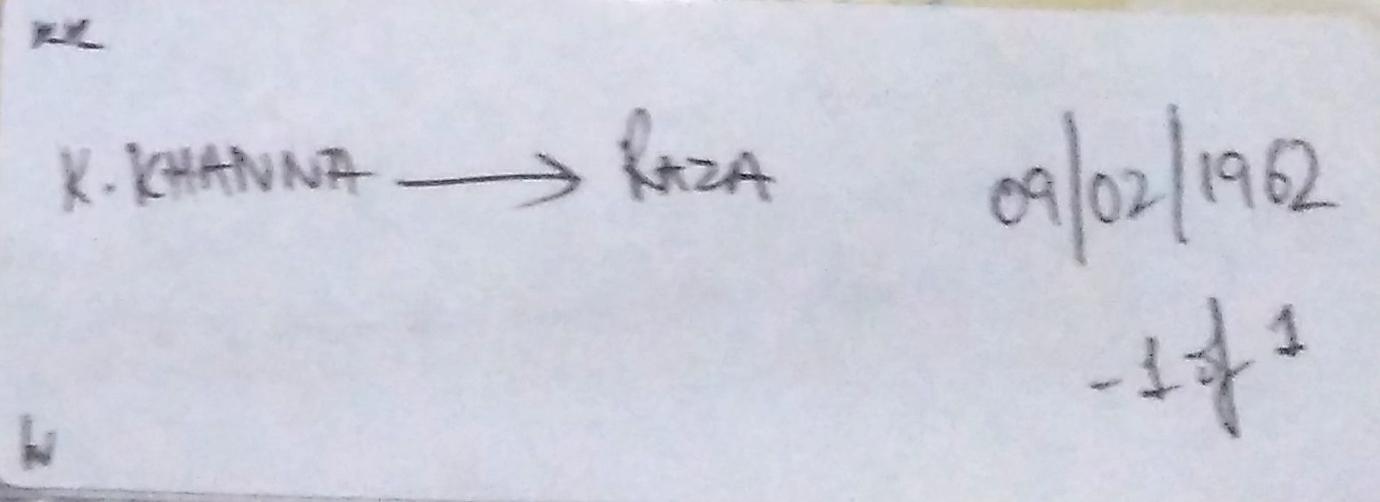 KK
K. KHANNA → RAZA 09/02/1962
- 1 of 1